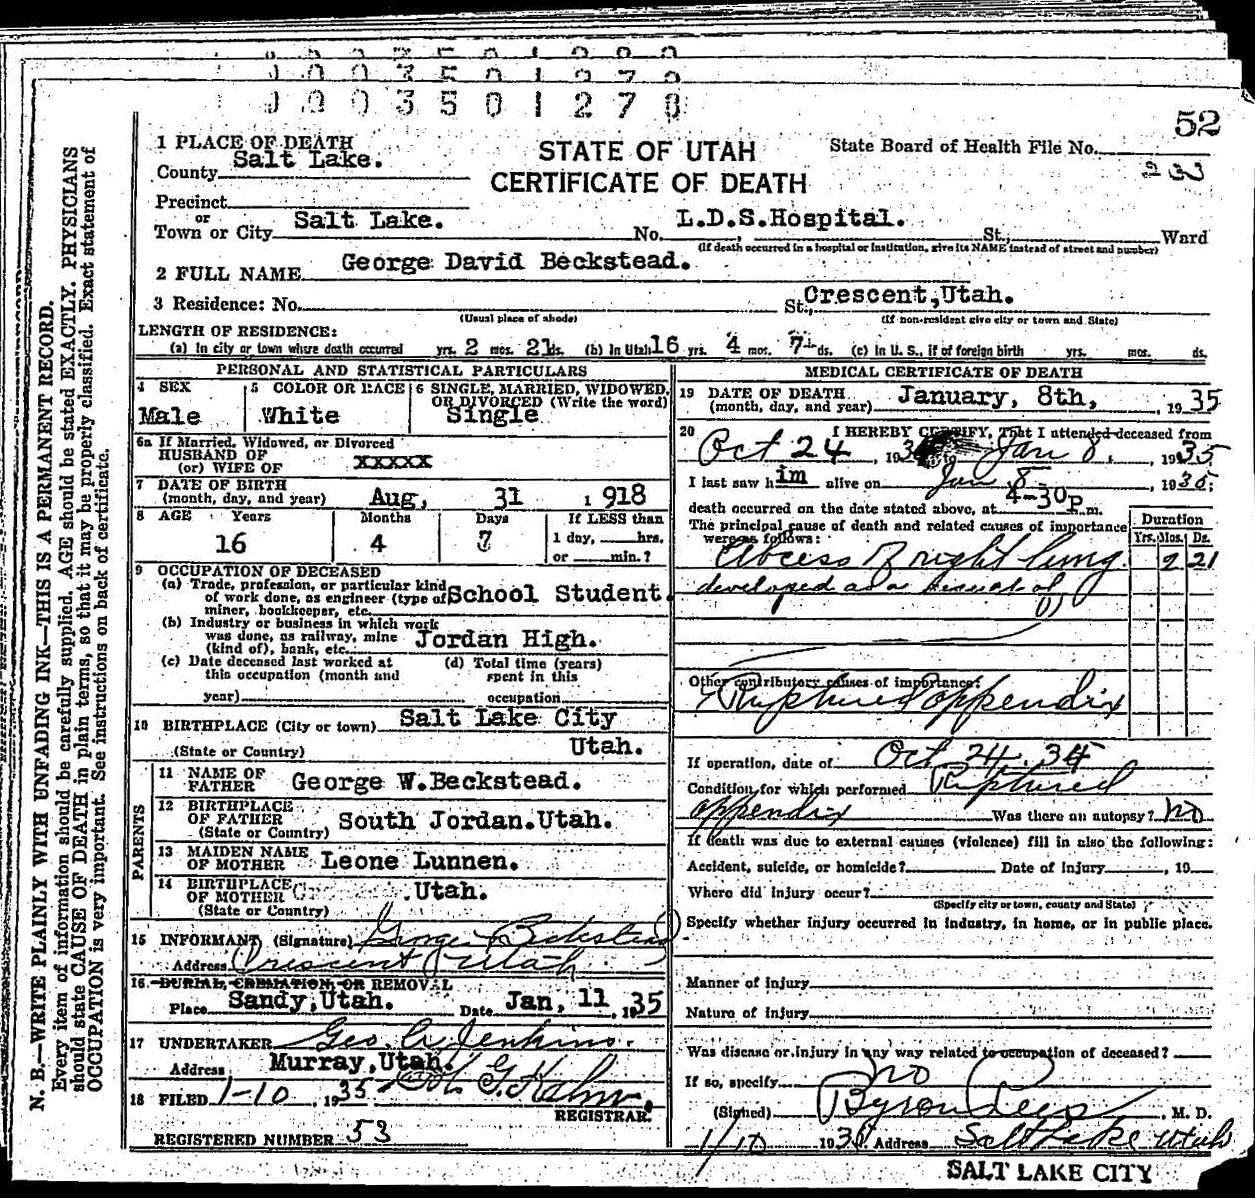 0003501278
52
1 PLACE OF DEATH
County Salt Lake.
STATE OF UTAH
CERTIFICATE OF DEATH
State Board of Health File No.
233
Precinct
or
Town or City Salt Lake. No. L.D.S.Hospital. St., Ward
(If death occurred in a hospital or institution, give its NAME instead of street and number)
2 FULL NAME George David Beckstead.
3 Residence: No. St., Crescent,Utah.
(Usual place of abode) (If non-resident give city or town and State)
LENGTH OF RESIDENCE:
(a) In city or town where death occurred yrs. 2 mos. 21 ds. (b) In Utah 16 yrs. 4 mos. 7 ds. (c) In U. S., if of foreign birth yrs. mos. ds.
PERSONAL AND STATISTICAL PARTICULARS
4 SEX Male
5 COLOR OR RACE White
6 SINGLE, MARRIED, WIDOWED, OR DIVORCED (Write the word) Single
6a If Married, Widowed, or Divorced
HUSBAND OF
(or) WIFE OF XXXXX
7 DATE OF BIRTH
(month, day, and year) Aug, 31 1918
8 AGE Years Months Days If LESS than
16 4 7 1 day, hrs.
or min.?
9 OCCUPATION OF DECEASED
(a) Trade, profession, or particular kind
of work done, as engineer (type of School Student.
miner, bookkeeper, etc.
(b) Industry or business in which work
was done, as railway, mine Jordan High.
(kind of), bank, etc.
(c) Date deceased last worked at
this occupation (month and
year)
(d) Total time (years)
spent in this
occupation
10 BIRTHPLACE (City or town) Salt Lake City
(State or Country) Utah.
PARENTS
11 NAME OF
FATHER George W.Beckstead.
12 BIRTHPLACE
OF FATHER South Jordan.Utah.
(State or Country)
13 MAIDEN NAME
OF MOTHER Leone Lunnen.
14 BIRTHPLACE
OF MOTHER Utah.
(State or Country)
15 INFORMANT (Signature) George Beckstead
Address Crescent Utah
16 BURIAL, CREMATION, OR REMOVAL
Place Sandy,Utah. Date Jan, 11 1935
17 UNDERTAKER Geo A Jenkins.
Address Murray,Utah.
18 FILED 1-10, 1935
REGISTRAR.
REGISTERED NUMBER 53
MEDICAL CERTIFICATE OF DEATH
19 DATE OF DEATH
(month, day, and year) January, 8th, 1935
20 I HEREBY CERTIFY, That I attended deceased from
Oct 24, 193 to Jan 8, 1935
I last saw him alive on Jan 8, 1935;
death occurred on the date stated above, at 4-30P.m.
The principal cause of death and related causes of importance
were as follows:
Duration
Yrs. Mos. Ds.
Abcess of right lung. 2 21
developed as a result of
Other contributory causes of importance:
Ruptured appendix
If operation, date of Oct 24. 34
Condition for which performed Ruptured
appendix Was there an autopsy? No
If death was due to external causes (violence) fill in also the following:
Accident, suicide, or homicide? Date of Injury , 19
Where did injury occur?
(Specify city or town, county and State)
Specify whether injury occurred in industry, in home, or in public place.
Manner of injury
Nature of injury
Was disease or injury in any way related to occupation of deceased?
If so, specify no
(Signed) Byron Rees, M. D.
1/10 1935 Address Salt Lake Utah
SALT LAKE CITY
N. B.—WRITE PLAINLY WITH UNFADING INK—THIS IS A PERMANENT RECORD.
Every item of information should be carefully supplied. AGE should be stated EXACTLY. PHYSICIANS
should state CAUSE OF DEATH in plain terms, so that it may be properly classified. Exact statement of
OCCUPATION is very important. See instructions on back of certificate.